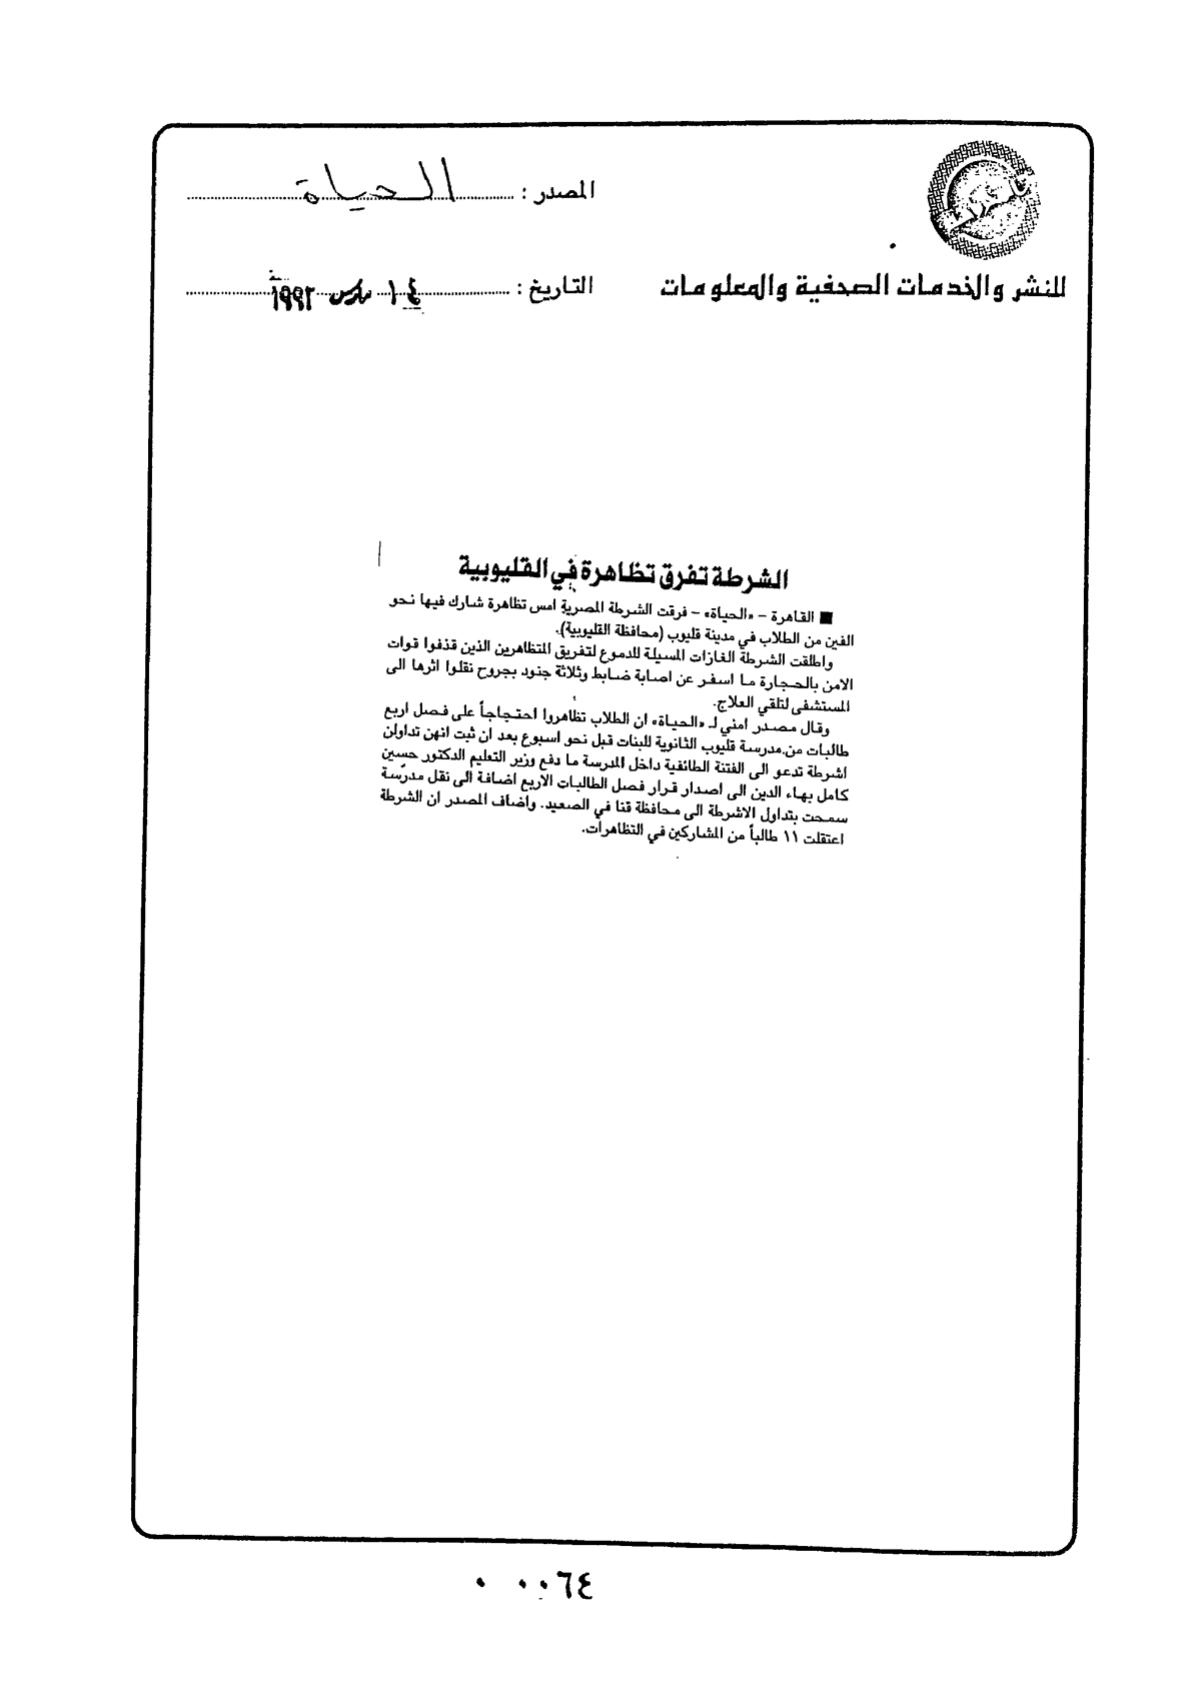 المصدر : الحياة
للنشر والخدمات الصحفية والمعلومات
التاريخ : ١٤ مارس ١٩٩٢
الشرطة تفرق تظاهرة في القليوبية
■ القاهرة – «الحياة» – فرقت الشرطة المصرية امس تظاهرة شارك فيها نحو
الفين من الطلاب في مدينة قليوب (محافظة القليوبية).
واطلقت الشرطة الغازات المسيلة للدموع لتفريق المتظاهرين الذين قذفوا قوات
الامن بالحجارة ما اسفر عن اصابة ضابط وثلاثة جنود بجروح نقلوا اثرها الى
المستشفى لتلقي العلاج.
وقال مصدر امني لـ «الحياة» ان الطلاب تظاهروا احتجاجاً على فصل اربع
طالبات من مدرسة قليوب الثانوية للبنات قبل نحو اسبوع بعد ان ثبت انهن تداولن
اشرطة تدعو الى الفتنة الطائفية داخل المدرسة ما دفع وزير التعليم الدكتور حسين
كامل بهاء الدين الى اصدار قرار فصل الطالبات الاربع اضافة الى نقل مدرسة
سمحت بتداول الاشرطة الى محافظة قنا في الصعيد. واضاف المصدر ان الشرطة
اعتقلت ١١ طالباً من المشاركين في التظاهرات.
٠ ٠٠٦٤